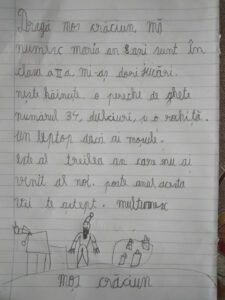 Dragă moș crăciun. Mă
numesc maria am 8 ani sunt în
clasa a II a mi-aș dori jucări.
niște hăinuțe. o pereche de ghete
numărul 34, dulciuri, și o rochiță.
un leptop dacă ai
Este al treilea an care nu ai
venit al noi. poate anul acesta
vei te aștept. multumesc
moș crăciun